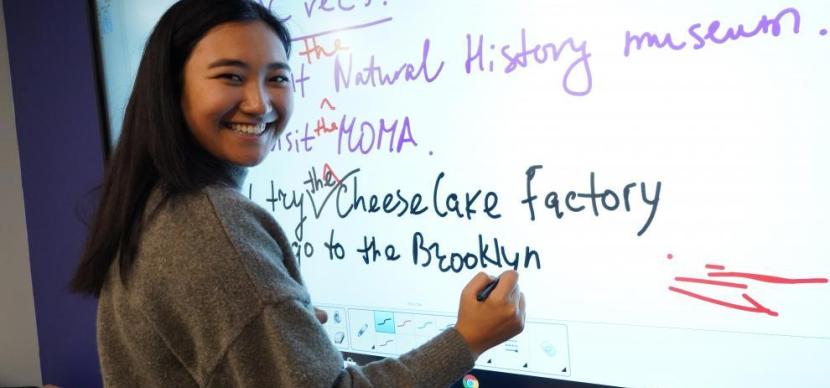 the
Natural History museum.
the
MOMA.
the
try Cheese Cake factory
go to the Brooklyn